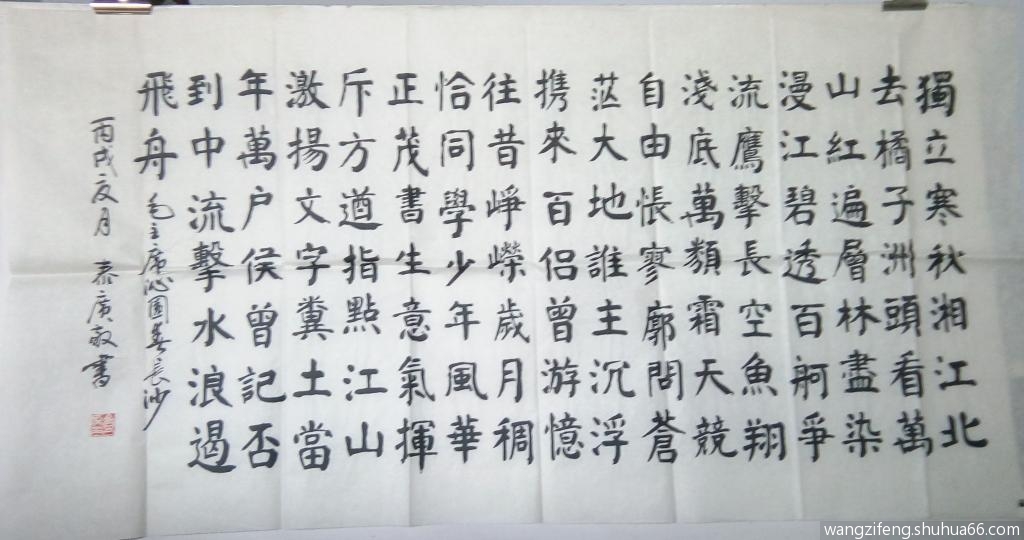 獨立寒秋湘江北
去橘子洲頭看萬
山紅遍層林盡染
漫江碧透百舸爭
流鷹擊長空魚翔
淺底萬類霜天競
自由悵寥廓問蒼
茫大地誰主沉浮
携來百侶曾游憶
往昔崢嶸歲月稠
恰同學少年風華
正茂書生意氣揮
斥方遒指點江山
激揚文字糞土當
年萬户侯曾記否
到中流擊水浪遏
飛舟 毛主席沁園春長沙
丙戌夏月 廣敬書
wangzifeng.shuhua66.com